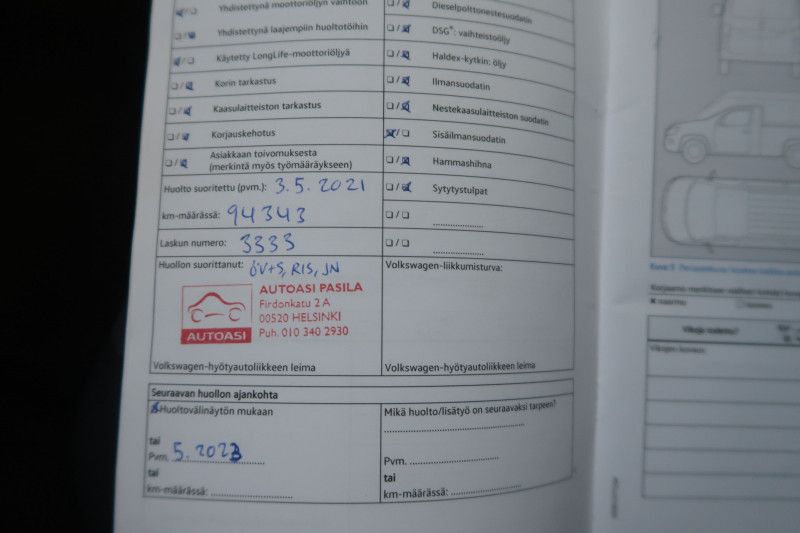 Yhdistettynä moottoriöljyn vaihtoon
Yhdistettynä laajempiin huoltotöihin
Käytetty LongLife-moottoriöljyä
Korin tarkastus
Kaasulaitteiston tarkastus
Korjauskehotus
Asiakkaan toivomuksesta
(merkintä myös työmääräykseen)
Huolto suoritettu (pvm.): 3.5.2021
km-määrässä: 94343
Laskun numero: 3333
Huollon suorittanut: ÖV+S, RIS, JN
AUTOASI PASILA
Firdonkatu 2 A
00520 HELSINKI
Puh. 010 340 2930
AUTOASI
Volkswagen-hyötyautoliikkeen leima
Dieselpolttonestesuodatin
DSG®: vaihteistoöljy
Haldex-kytkin: öljy
Ilmansuodatin
Nestekaasulaitteiston suodatin
Sisäilmansuodatin
Hammashihna
Sytytystulpat
Volkswagen-liikkumisturva:
Volkswagen-hyötyautoliikkeen leima
Seuraavan huollon ajankohta
Huoltovälinäytön mukaan
tai
Pvm. 5.2023
tai
km-määrässä:
Mikä huolto/lisätyö on seuraavaksi tarpeen?
Pvm.
tai
km-määrässä: